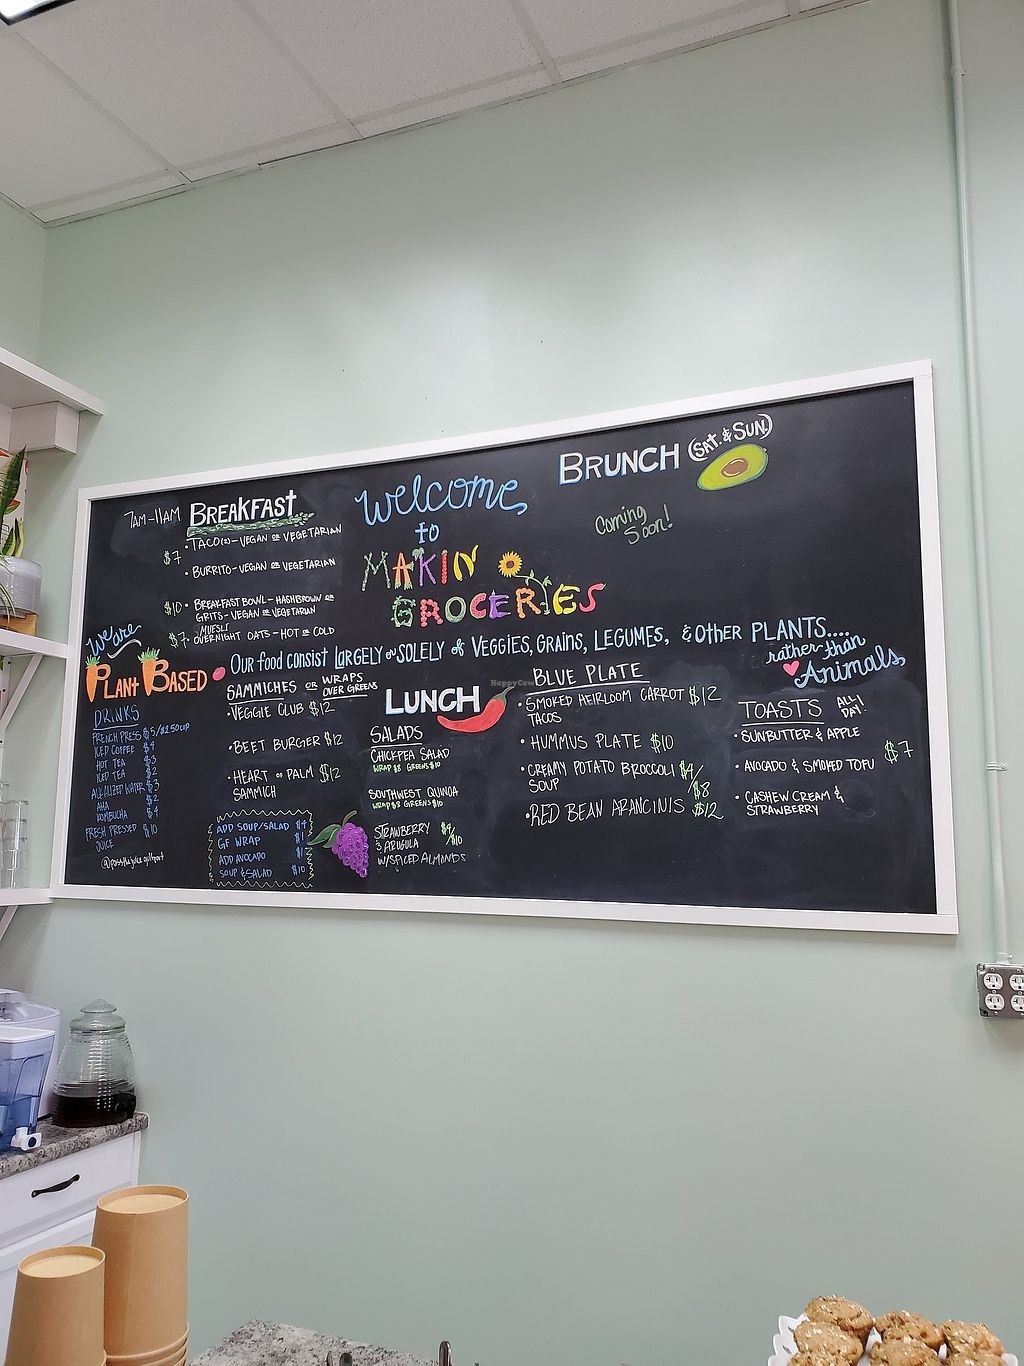 7AM-11AM BREAKFAST
$7
• TACO(2)-VEGAN OR VEGETARIAN
• BURRITO-VEGAN OR VEGETARIAN
$10 • BREAKFAST BOWL-HASHBROWN OR
GRITS-VEGAN OR VEGETARIAN
MUESLI
$7 • OVERNIGHT OATS-HOT OR COLD
Welcome
to
MAKIN
GROCERIES
BRUNCH (SAT. & SUN.)
Coming
Soon!
We are
PLANT BASED
Our food consist LARGELY or SOLELY of VEGGIES, GRAINS, LEGUMES, & OTHER PLANTS....
rather than
Animals
DRINKS
FRENCH PRESS $5/$2.50 CUP
ICED COFFEE $4
HOT TEA $3
ICED TEA $2
ALKALIZED WATER $3
AHA $2
KOMBUCHA $4
FRESH PRESSED $10
JUICE
SAMMICHES OR WRAPS
OVER GREENS
• VEGGIE CLUB $12
• BEET BURGER $12
• HEART OF PALM $12
SAMMICH
ADD SOUP/SALAD $4
GF WRAP $1
ADD AVOCADO $1
SOUP & SALAD $10
LUNCH
SALADS
CHICKPEA SALAD
WRAP $8 GREENS $10
SOUTHWEST QUINOA
WRAP $8 GREENS $10
STRAWBERRY $4/$10
& ARUGULA
W/SPICED ALMONDS
BLUE PLATE
• SMOKED HEIRLOOM CARROT $12
TACOS
• HUMMUS PLATE $10
• CREAMY POTATO BROCCOLI $4/$8
SOUP
• RED BEAN ARANCINIS $12
TOASTS ALL DAY!
• SUNBUTTER & APPLE
$7
• AVOCADO & SMOKED TOFU
• CASHEW CREAM &
STRAWBERRY
HappyCow